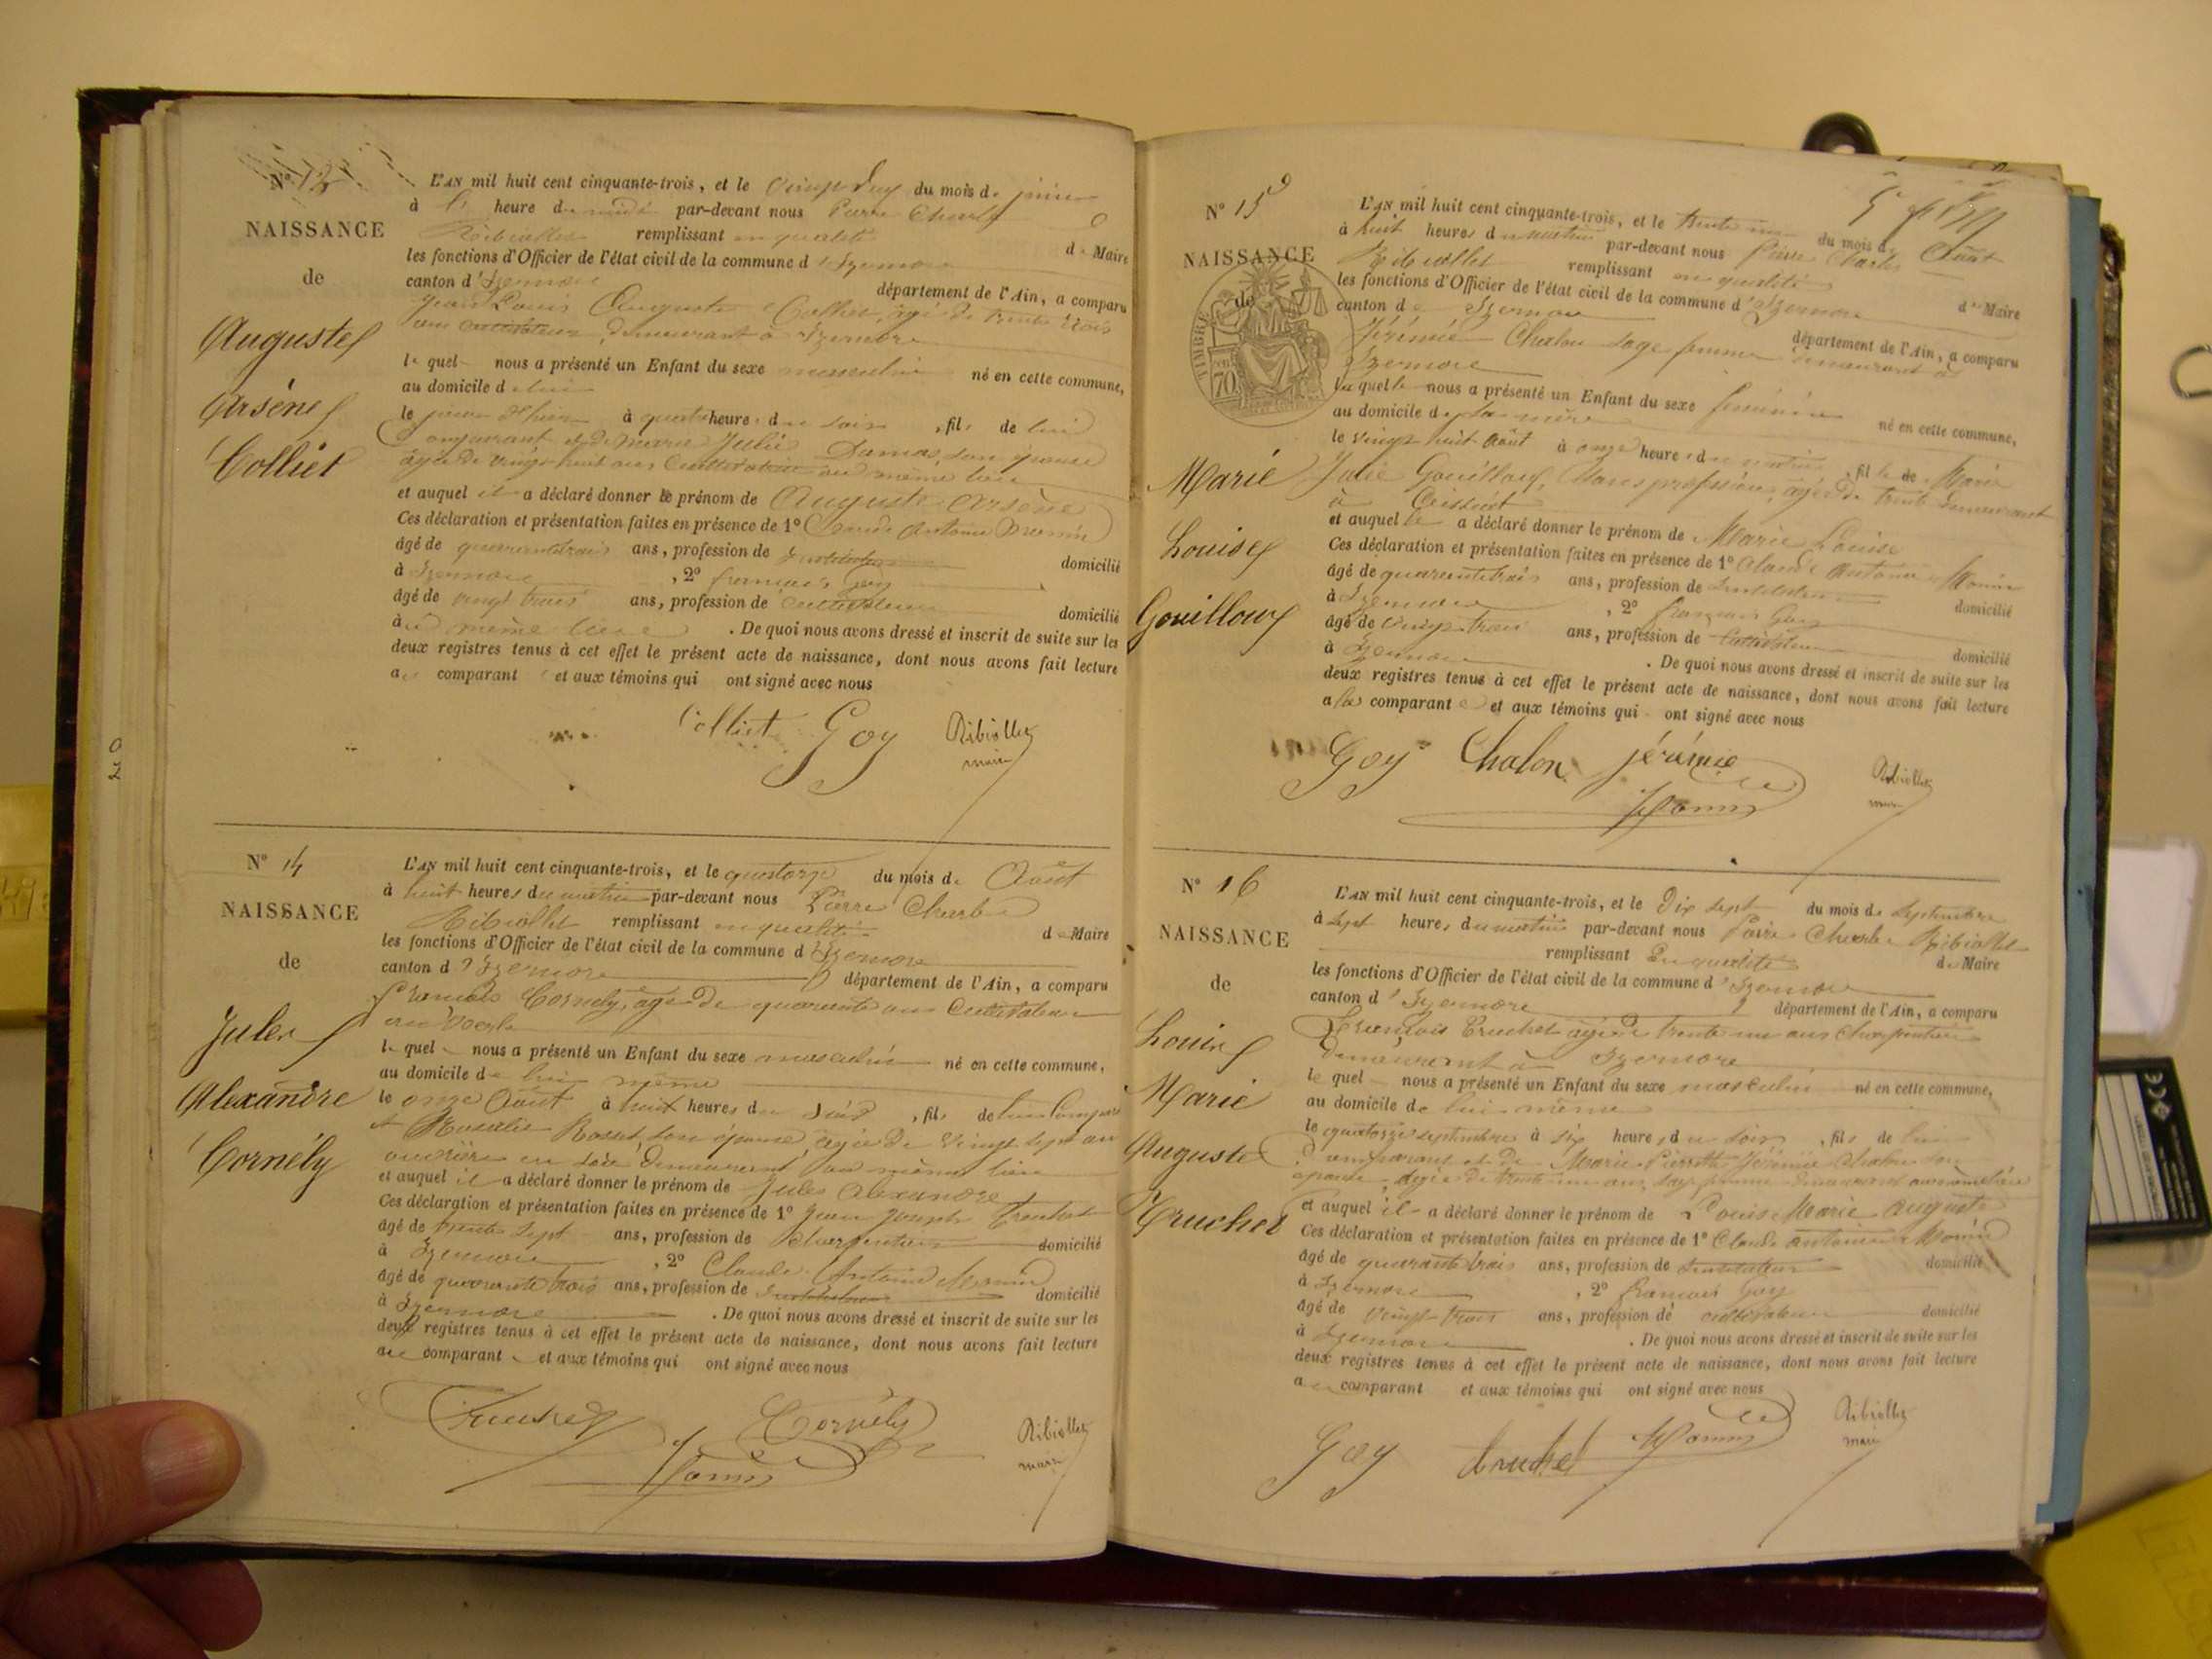 N° 13
NAISSANCE
de
Auguste
Arsène
Colliet
L'AN mil huit cent cinquante-trois, et le vingt deux du mois de juin
à heure de midi par-devant nous Pierre Charles
Ribiollet remplissant en qualité
de Maire
les fonctions d'Officier de l'état civil de la commune d'Izernore
canton d'Izernore département de l'Ain, a comparu
Jean Louis Auguste Colliet, âgé de trente trois
ans cultivateur, demeurant à Izernore
lequel nous a présenté un Enfant du sexe masculin né en cette commune,
au domicile de lui
le jour d'hier à quatre heures du soir, fils de lui
Comparant et de Marie Julie Damas, son épouse
âgée de vingt huit ans Cultivateur au même lieu
et auquel il a déclaré donner le prénom de Auguste Arsène
Ces déclaration et présentation faites en présence de 1° Claude Antoine Monin
âgé de quarante trois ans, profession de Instituteur domicilié
à Izernore, 2° français Goy
âgé de vingt trois ans, profession de cultivateur domicilié
au même lieu. De quoi nous avons dressé et inscrit de suite sur les
deux registres tenus à cet effet le présent acte de naissance, dont nous avons fait lecture
au comparant et aux témoins qui ont signé avec nous
Colliet Goy Ribiollet
maire
20
N° 14
NAISSANCE
de
Jules
Alexandre
Cornély
L'AN mil huit cent cinquante-trois, et le quatorze du mois de Août
à huit heures du matin par-devant nous Pierre Charles
Ribiollet remplissant en qualité
de Maire
les fonctions d'Officier de l'état civil de la commune d'Izernore
canton d'Izernore département de l'Ain, a comparu
français Cornély, âgé de quarante ans Cultivateur
lequel nous a présenté un Enfant du sexe masculin né en cette commune,
au domicile de lui même
le onze Août à huit heures du soir, fils de lui Comparant
et Rosalie Rosset, son épouse, âgée de vingt sept ans
ouvrière en soie demeurant au même lieu
et auquel il a déclaré donner le prénom de Jules Alexandre
Ces déclaration et présentation faites en présence de 1° Jean Joseph Truchet
âgé de trente sept ans, profession de charpentier domicilié
à Izernore, 2° Claude Antoine Monin
âgé de quarante trois ans, profession de Instituteur domicilié
à Izernore. De quoi nous avons dressé et inscrit de suite sur les
deux registres tenus à cet effet le présent acte de naissance, dont nous avons fait lecture
au comparant et aux témoins qui ont signé avec nous
Truchet Cornély
Monin Ribiollet
maire
N° 15
NAISSANCE
de
TIMBRE
70
Marie
Louise
Gouilloux
L'AN mil huit cent cinquante-trois, et le trente un du mois de Août
à huit heures du matin par-devant nous Pierre Charles
Ribiollet remplissant en qualité
de Maire
les fonctions d'Officier de l'état civil de la commune d'Izernore
canton de Izernore département de l'Ain, a comparu
Jérémie Chalon sage femme demeurant à
Izernore
laquelle nous a présenté un Enfant du sexe féminin né en cette commune,
au domicile de sa mère
le vingt huit Août à onze heures du matin, fille de Marie
Julie Gouilloux, sans profession, âgée de trente demeurant
à Ceissiat
et auquel le a déclaré donner le prénom de Marie Louise
Ces déclaration et présentation faites en présence de 1° Claude Antoine Monin
âgé de quarante trois ans, profession de Instituteur domicilié
à Izernore, 2° français Goy
âgé de vingt trois ans, profession de Cultivateur domicilié
à Izernore. De quoi nous avons dressé et inscrit de suite sur les
deux registres tenus à cet effet le présent acte de naissance, dont nous avons fait lecture
a la comparante et aux témoins qui ont signé avec nous
Goy Chalon jérémie
Monin Ribiollet
maire
N° 16
NAISSANCE
de
Louis
Marie
Auguste
Truchet
L'AN mil huit cent cinquante-trois, et le dix sept du mois de Septembre
à sept heures du matin par-devant nous Pierre Charles Ribiollet
remplissant En qualité de Maire
les fonctions d'Officier de l'état civil de la commune d'Izernore
canton d'Izernore département de l'Ain, a comparu
François Truchet âgé de trente un ans charpentier
demeurant à Izernore
lequel nous a présenté un Enfant du sexe masculin né en cette commune,
au domicile de lui même
le quatorze septembre à six heures du soir, fils de lui
Comparant et de Marie Pierrette Jérémie Chalon son
épouse, âgée de trente un ans, sage femme demeurant
et auquel il a déclaré donner le prénom de Louis Marie Auguste
Ces déclaration et présentation faites en présence de 1° Claude Antoine Monin
âgé de quarante trois ans, profession de Instituteur domicilié
à Izernore, 2° français Goy
âgé de vingt trois ans, profession de cultivateur domicilié
à Izernore. De quoi nous avons dressé et inscrit de suite sur les
deux registres tenus à cet effet le présent acte de naissance, dont nous avons fait lecture
au comparant et aux témoins qui ont signé avec nous
Goy truchet Monin Ribiollet
maire